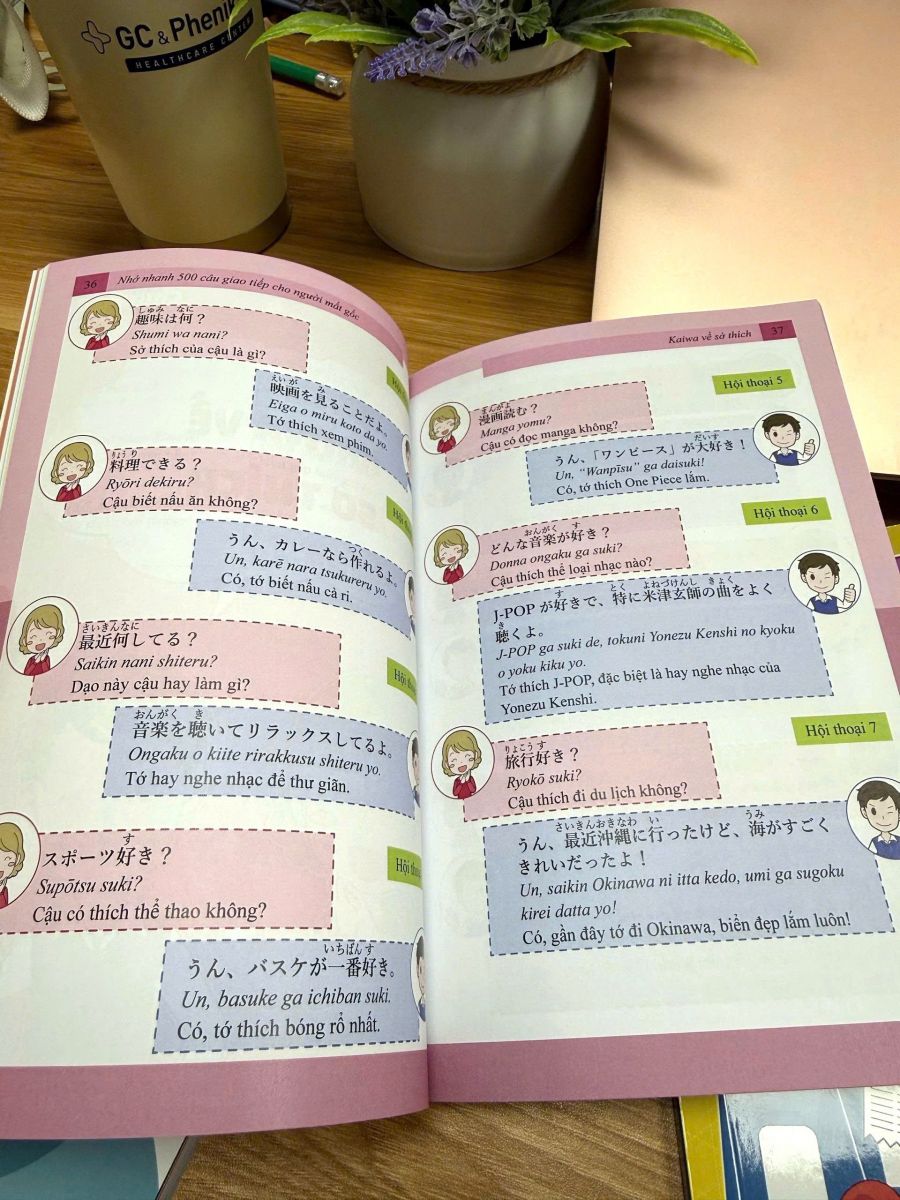 GC & Phenik
HEALTHCARE CENTER
36 Nhớ nhanh 500 câu giao tiếp cho người mất gốc
しゅみ なに
趣味は何？
Shumi wa nani?
Sở thích của cậu là gì?
えいが み
映画を見ることだよ。
Eiga o miru koto da yo.
Tớ thích xem phim.
りょうり
料理できる？
Ryōri dekiru?
Cậu biết nấu ăn không?
Hội
つく
うん、カレーなら作れるよ。
Un, karē nara tsukureru yo.
Có, tớ biết nấu cà ri.
さいきんなに
最近何してる？
Saikin nani shiteru?
Dạo này cậu hay làm gì?
Hội
おんがく き
音楽を聴いてリラックスしてるよ。
Ongaku o kiite rirakkusu shiteru yo.
Tớ hay nghe nhạc để thư giãn.
す
スポーツ好き？
Supōtsu suki?
Cậu có thích thể thao không?
Hội
いちばん す
うん、バスケが一番好き。
Un, basuke ga ichiban suki.
Có, tớ thích bóng rổ nhất.
Kaiwa về sở thích 37
Hội thoại 5
まんがよ
漫画読む？
Manga yomu?
Cậu có đọc manga không?
だいす
うん、「ワンピース」が大好き！
Un, “Wanpīsu” ga daisuki!
Có, tớ thích One Piece lắm.
Hội thoại 6
おんがく す
どんな音楽が好き？
Donna ongaku ga suki?
Cậu thích thể loại nhạc nào?
す とく よねづけんし きょく
J-POP が好きで、特に米津玄師の曲をよく
き
聴くよ。
J-POP ga suki de, tokuni Yonezu Kenshi no kyoku
o yoku kiku yo.
Tớ thích J-POP, đặc biệt là hay nghe nhạc của
Yonezu Kenshi.
Hội thoại 7
りょこう す
旅行好き？
Ryokō suki?
Cậu thích đi du lịch không?
さいきんおきなわ い うみ
うん、最近沖縄に行ったけど、海がすごく
きれいだったよ！
Un, saikin Okinawa ni itta kedo, umi ga sugoku
kirei datta yo!
Có, gần đây tớ đi Okinawa, biển đẹp lắm luôn!